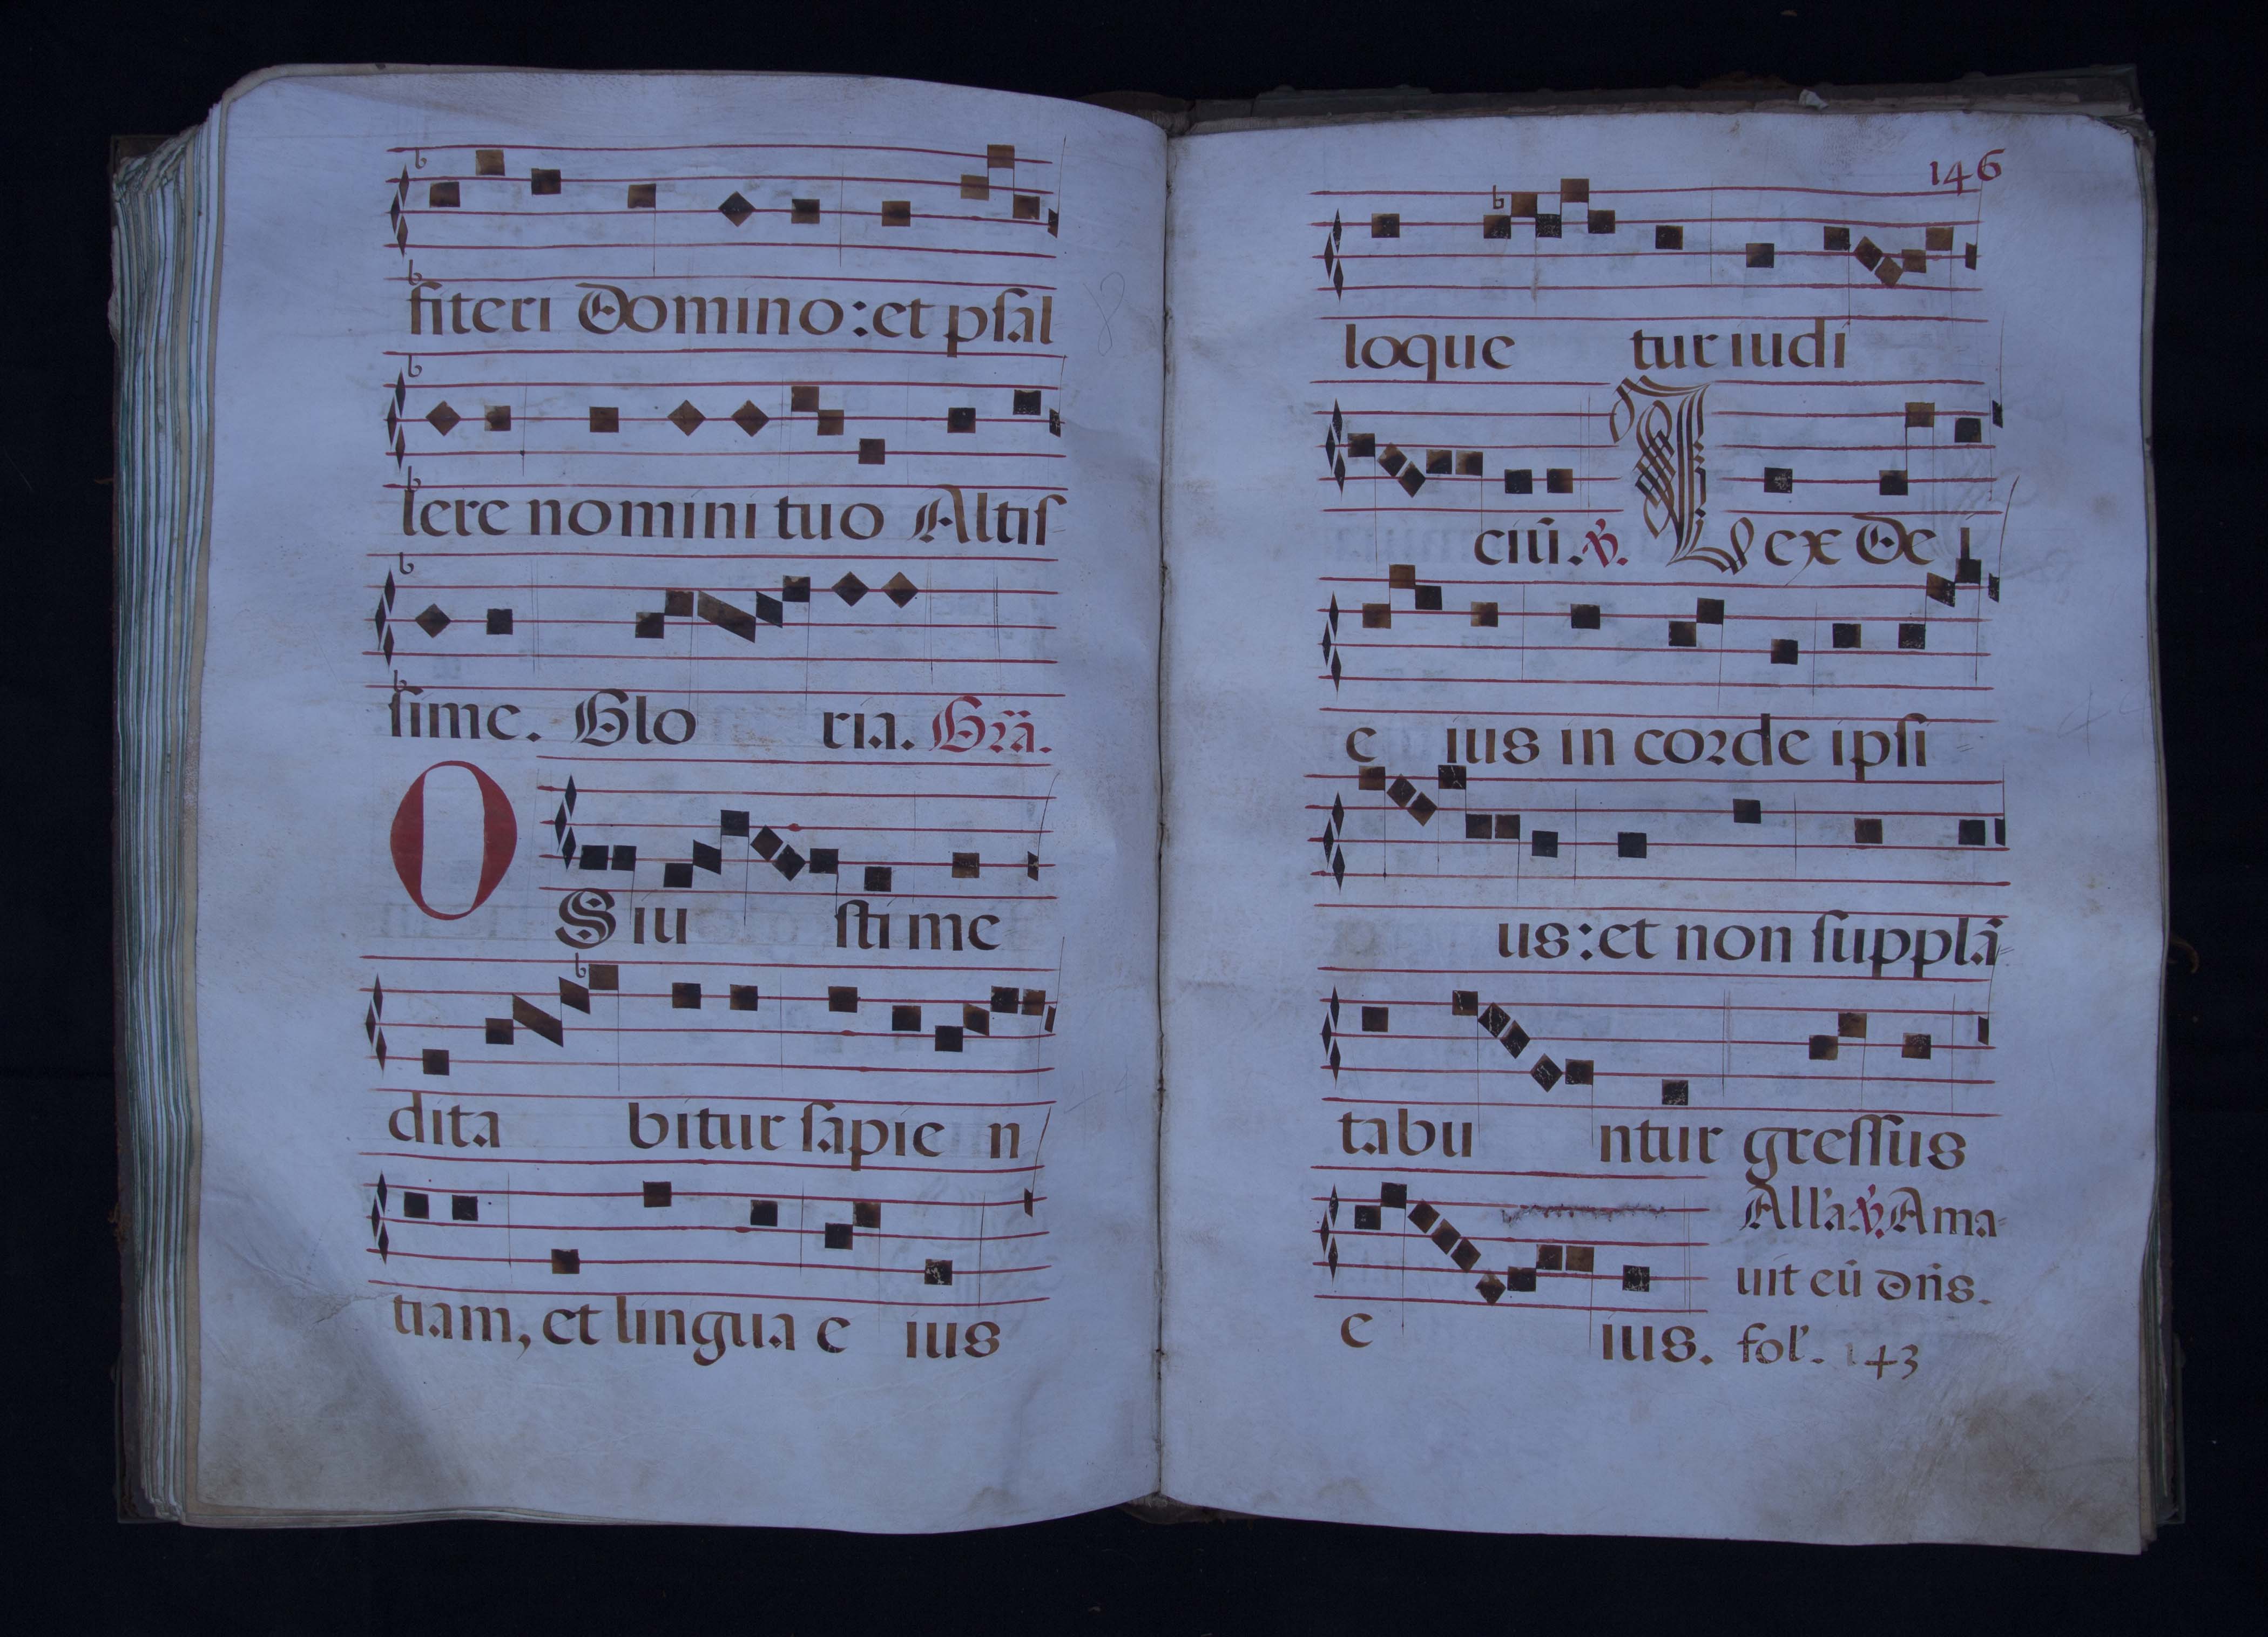 fiteri Domino: et psal
lere nomini tuo Altis
sime. Glo ria. Grã.
OS iu sti me
dita bitur sapie n
tiam, et lingua e ius
146
loque tur iudi
ciũ. ℣. Lex De i
e ius in corde ipsi
us: et non supplã
tabu ntur gressus
All'a ℣. Ama
uit eũ dñs.
e ius. fol'. 143